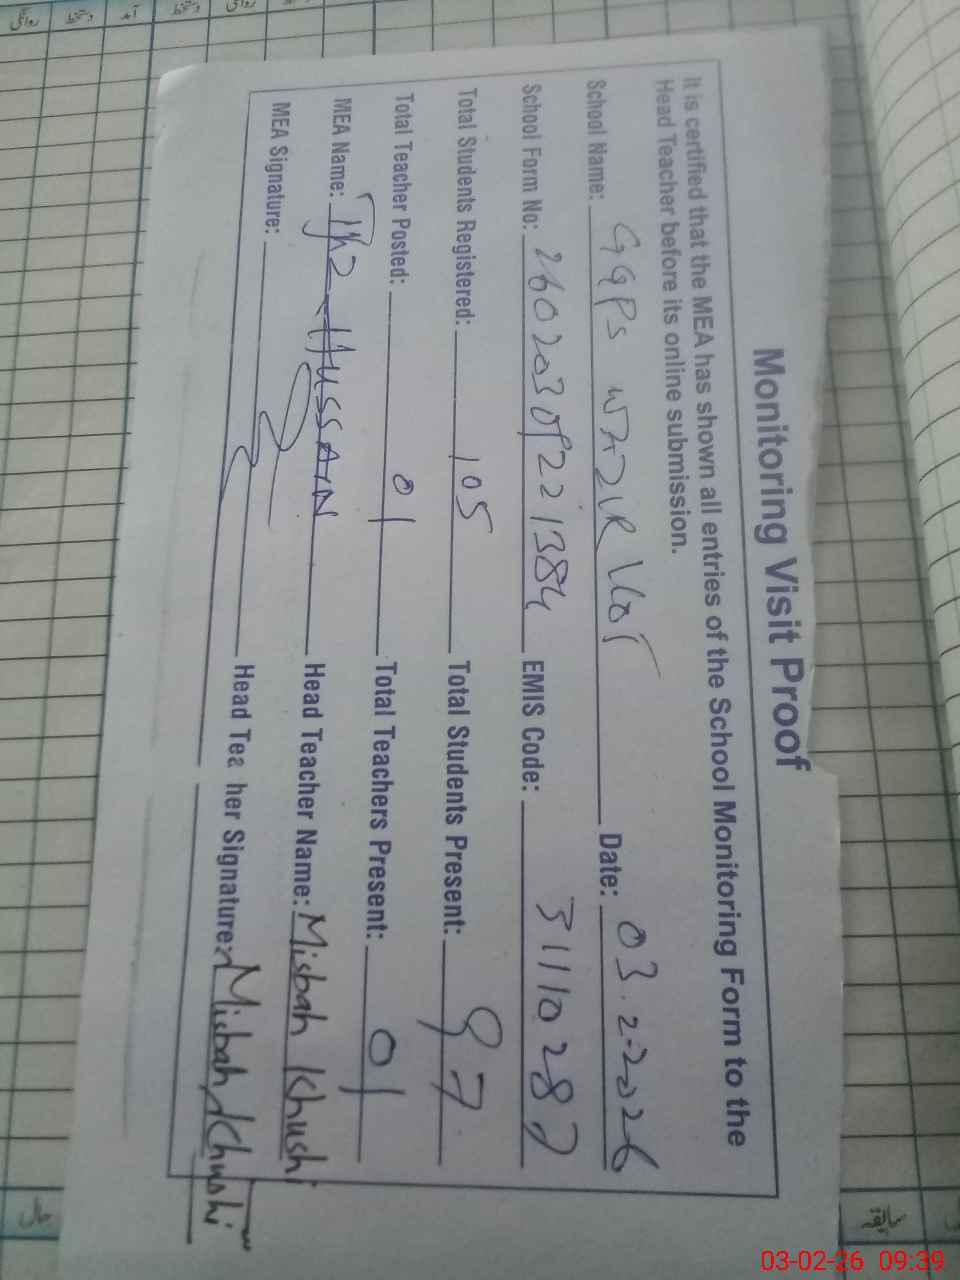 Monitoring Visit Proof
It is certified that the MEA has shown all entries of the School Monitoring Form to the
Head Teacher before its online submission.
School Name: GGPS WAZIR KOT Date: 03.2.2026
School Form No: EMIS Code: 31110287
Total Students Registered: 105 Total Students Present: 97
Total Teacher Posted: 01 Total Teachers Present: 01
MEA Name: HUSSAIN Head Teacher Name: Misbah Khushi
MEA Signature: Head Tea her Signature: Misbah Khushi
03-02-26 09:39